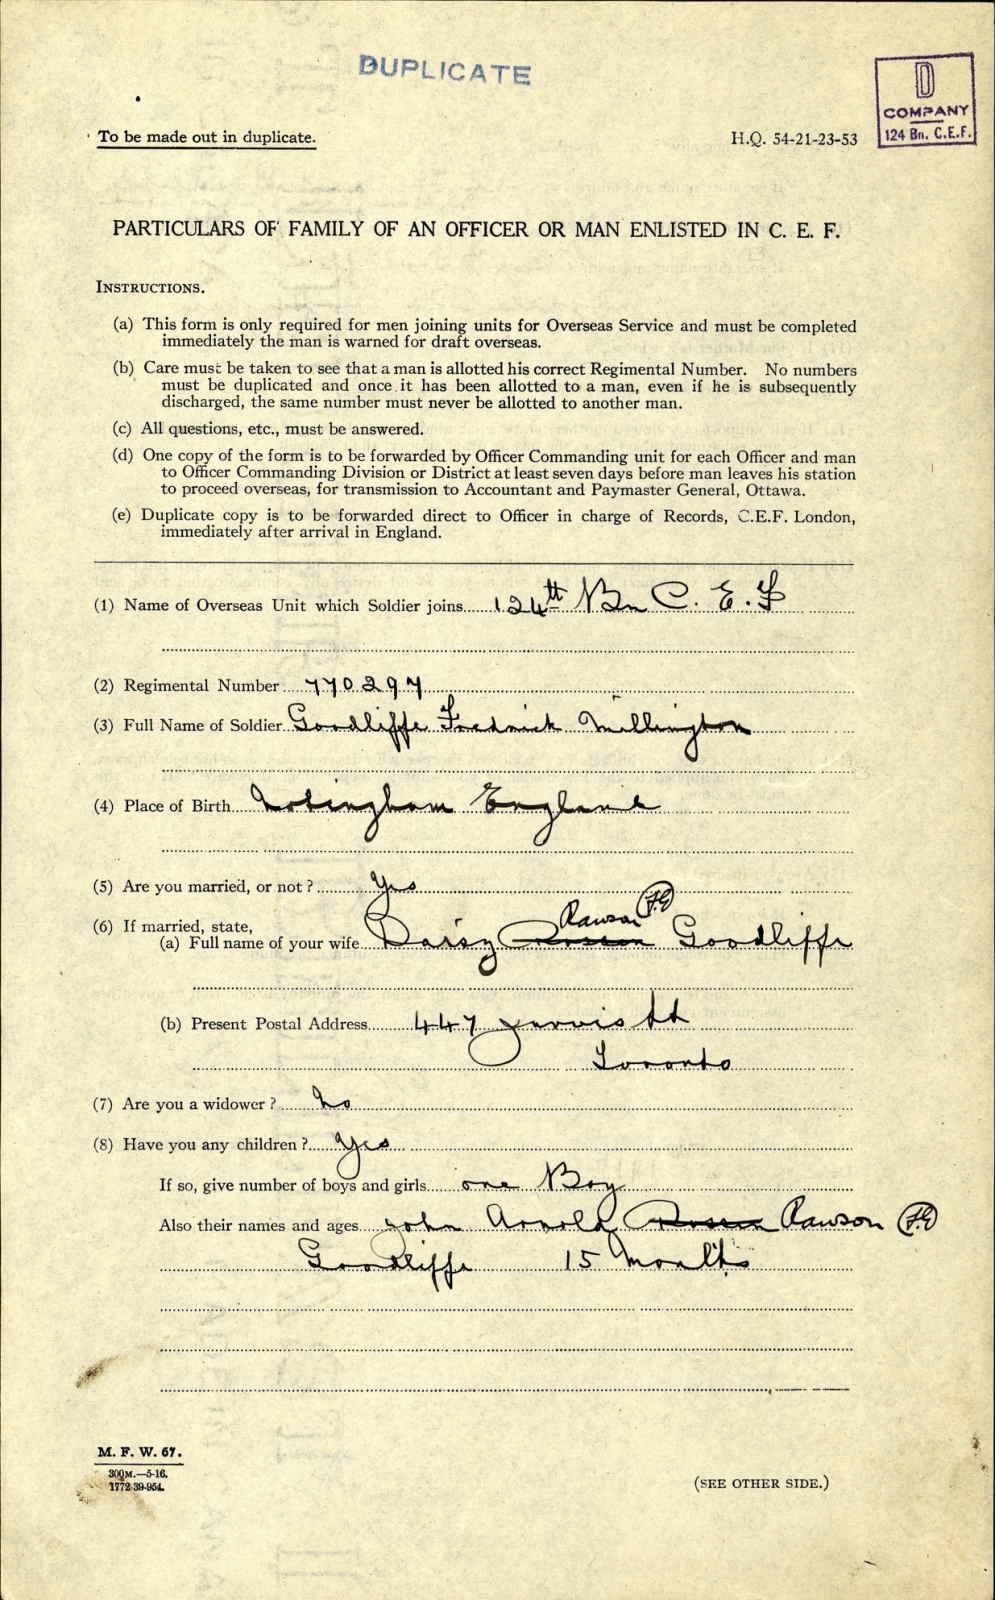 DUPLICATE
D
COMPANY
124 Bn. C.E.F.
To be made out in duplicate.
H.Q. 54-21-23-53
PARTICULARS OF FAMILY OF AN OFFICER OR MAN ENLISTED IN C. E. F.
INSTRUCTIONS.
(a) This form is only required for men joining units for Overseas Service and must be completed
immediately the man is warned for draft overseas.
(b) Care must be taken to see that a man is allotted his correct Regimental Number. No numbers
must be duplicated and once it has been allotted to a man, even if he is subsequently
discharged, the same number must never be allotted to another man.
(c) All questions, etc., must be answered.
(d) One copy of the form is to be forwarded by Officer Commanding unit for each Officer and man
to Officer Commanding Division or District at least seven days before man leaves his station
to proceed overseas, for transmission to Accountant and Paymaster General, Ottawa.
(e) Duplicate copy is to be forwarded direct to Officer in charge of Records, C.E.F. London,
immediately after arrival in England.
(1) Name of Overseas Unit which Soldier joins 124th Bn C. E. F
(2) Regimental Number 770297
(3) Full Name of Soldier Goodliffe Fredrick Millington
(4) Place of Birth Notingham England
(5) Are you married, or not? Yes
(6) If married, state,
Rawson F.G
(a) Full name of your wife Daisy Goodliffe
(b) Present Postal Address 447 Jarvis St
Toronto
(7) Are you a widower? No
(8) Have you any children? Yes
If so, give number of boys and girls one Boy
Also their names and ages John Arnold Rawson F.G
Goodliffe 15 Months
M. F. W. 67.
300M.—5-16.
1772-39-954.
(SEE OTHER SIDE.)